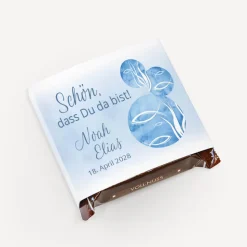 Schön,
dass Du da bist!
Noah
Elias
18. April 2028
VOLLNUSS